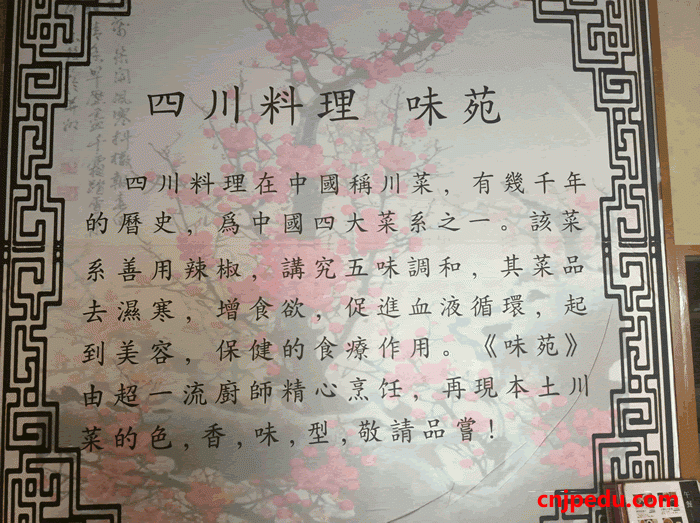 四川料理 味苑
四川料理在中國稱川菜，有幾千年
的曆史，爲中國四大菜系之一。該菜
系善用辣椒，講究五味調和，其菜品
去濕寒，增食欲，促進血液循環，起
到美容，保健的食療作用。《味苑》
由超一流廚師精心烹饪，再現本土川
菜的色，香，味，型，敬請品嘗！
cnjpedu.com